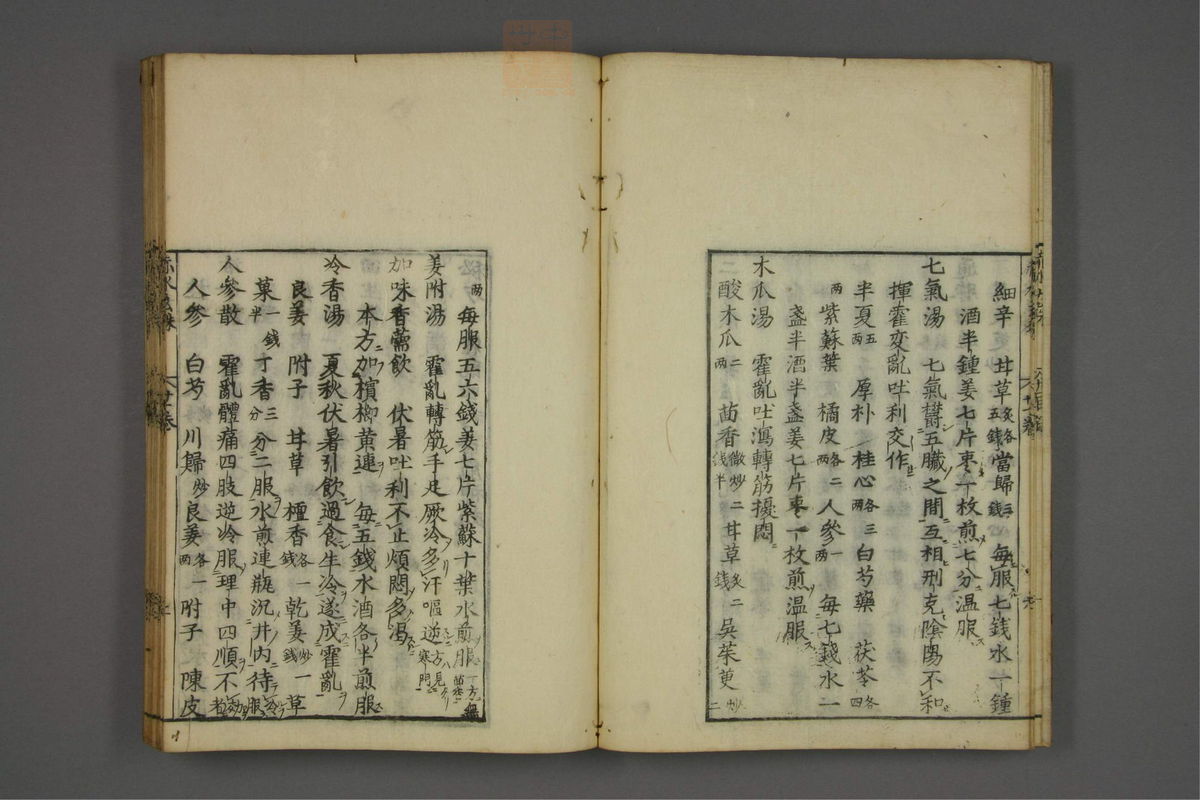 細辛 甘草炙各五錢 當歸三錢 每服七錢水一鍾
酒半鍾姜七片棗一枚煎七分温服
七氣湯 七氣欝五臟之間互相刑克陰陽不和
揮霍変亂吐利交作
半夏五两 厚朴 桂心各三两 白芍藥 茯苓各四
两 紫蘇葉 橘皮各二两 人參一两 每七錢水一
盞半酒半盞姜七片棗一枚煎温服
木瓜湯 霍亂吐瀉轉筋擾悶
酸木瓜二两 茴香微炒二錢半 甘草炙二錢 吳茱萸炒二
两 每服五六錢姜七片紫蘇十葉水煎服
姜附湯 霍亂轉筋手足厥冷多汗嘔逆方見寒門
加味香薷飲 伏暑吐利不止煩悶多渴
本方加檳榔黄連 每五錢水酒各半煎服
冷香湯 夏秋伏暑引飲過食生冷遂成霍亂
良姜 附子 甘草 檀香各一錢 乾姜炒一錢 草
菓一錢半 丁香三分 分二服水煎連瓶沉井内待冷服
人參散 霍亂體痛四肢逆冷服理中四順不
人參 白芍 川歸炒 良姜各一两 附子 陳皮